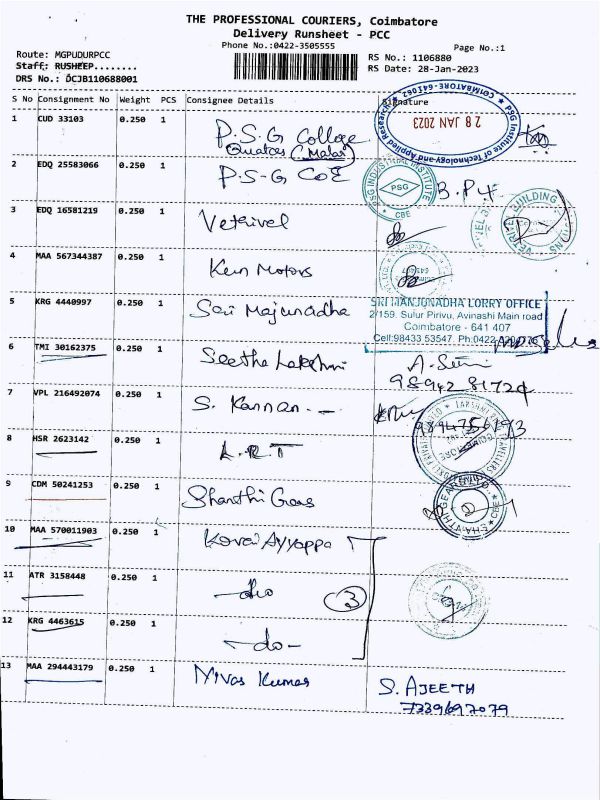 THE PROFESSIONAL COURIERS, Coimbatore
Delivery Runsheet - PCC
Phone No.:0422-3505555
Page No.:1
Route: MGPUDURPCC
RS No.: 1106880
Staff: RUSHEEP........
RS Date: 28-Jan-2023
DRS No.: DCJB110688001
S No Consignment No Weight PCS Consignee Details Signature
1 CUD 33103 0.250 1 P.S.G College
Quatros (Malar)
COIMBATORE-641062
28 JAN 2023
PSG Institute of Technology and Applied Research
2 EDQ 25583066 0.250 1 P.S-G CoE
PSG INDUSTRIAL INSTITUTE
PSG
CBE
3 EDQ 16581219 0.250 1 Vetrivel
4 MAA 567344387 0.250 1 Ken Motors
5 KRG 4440997 0.250 1 Sri Majunadha
SRI MANJUNADHA LORRY OFFICE
2/159. Sulur Pirivu, Avinashi Main road
Coimbatore - 641 407
Cell:98433 53547. Ph:0422
6 TMI 30162375 0.250 1 Seetha Lakshmi
98942 81724
7 VPL 216492074 0.250 1 S. Kannan
8 HSR 2623142 0.250 1 L.R.T
9 CDM 50241253 0.250 1 Shanthi Gears
10 MAA 570011903 0.250 1 Kovai Ayyappa
11 ATR 3158448 0.250 1 -do
3
12 KRG 4463615 0.250 1 -do-
13 MAA 294443179 0.250 1 Nivas Kumar
S. AJEETH
7339697079